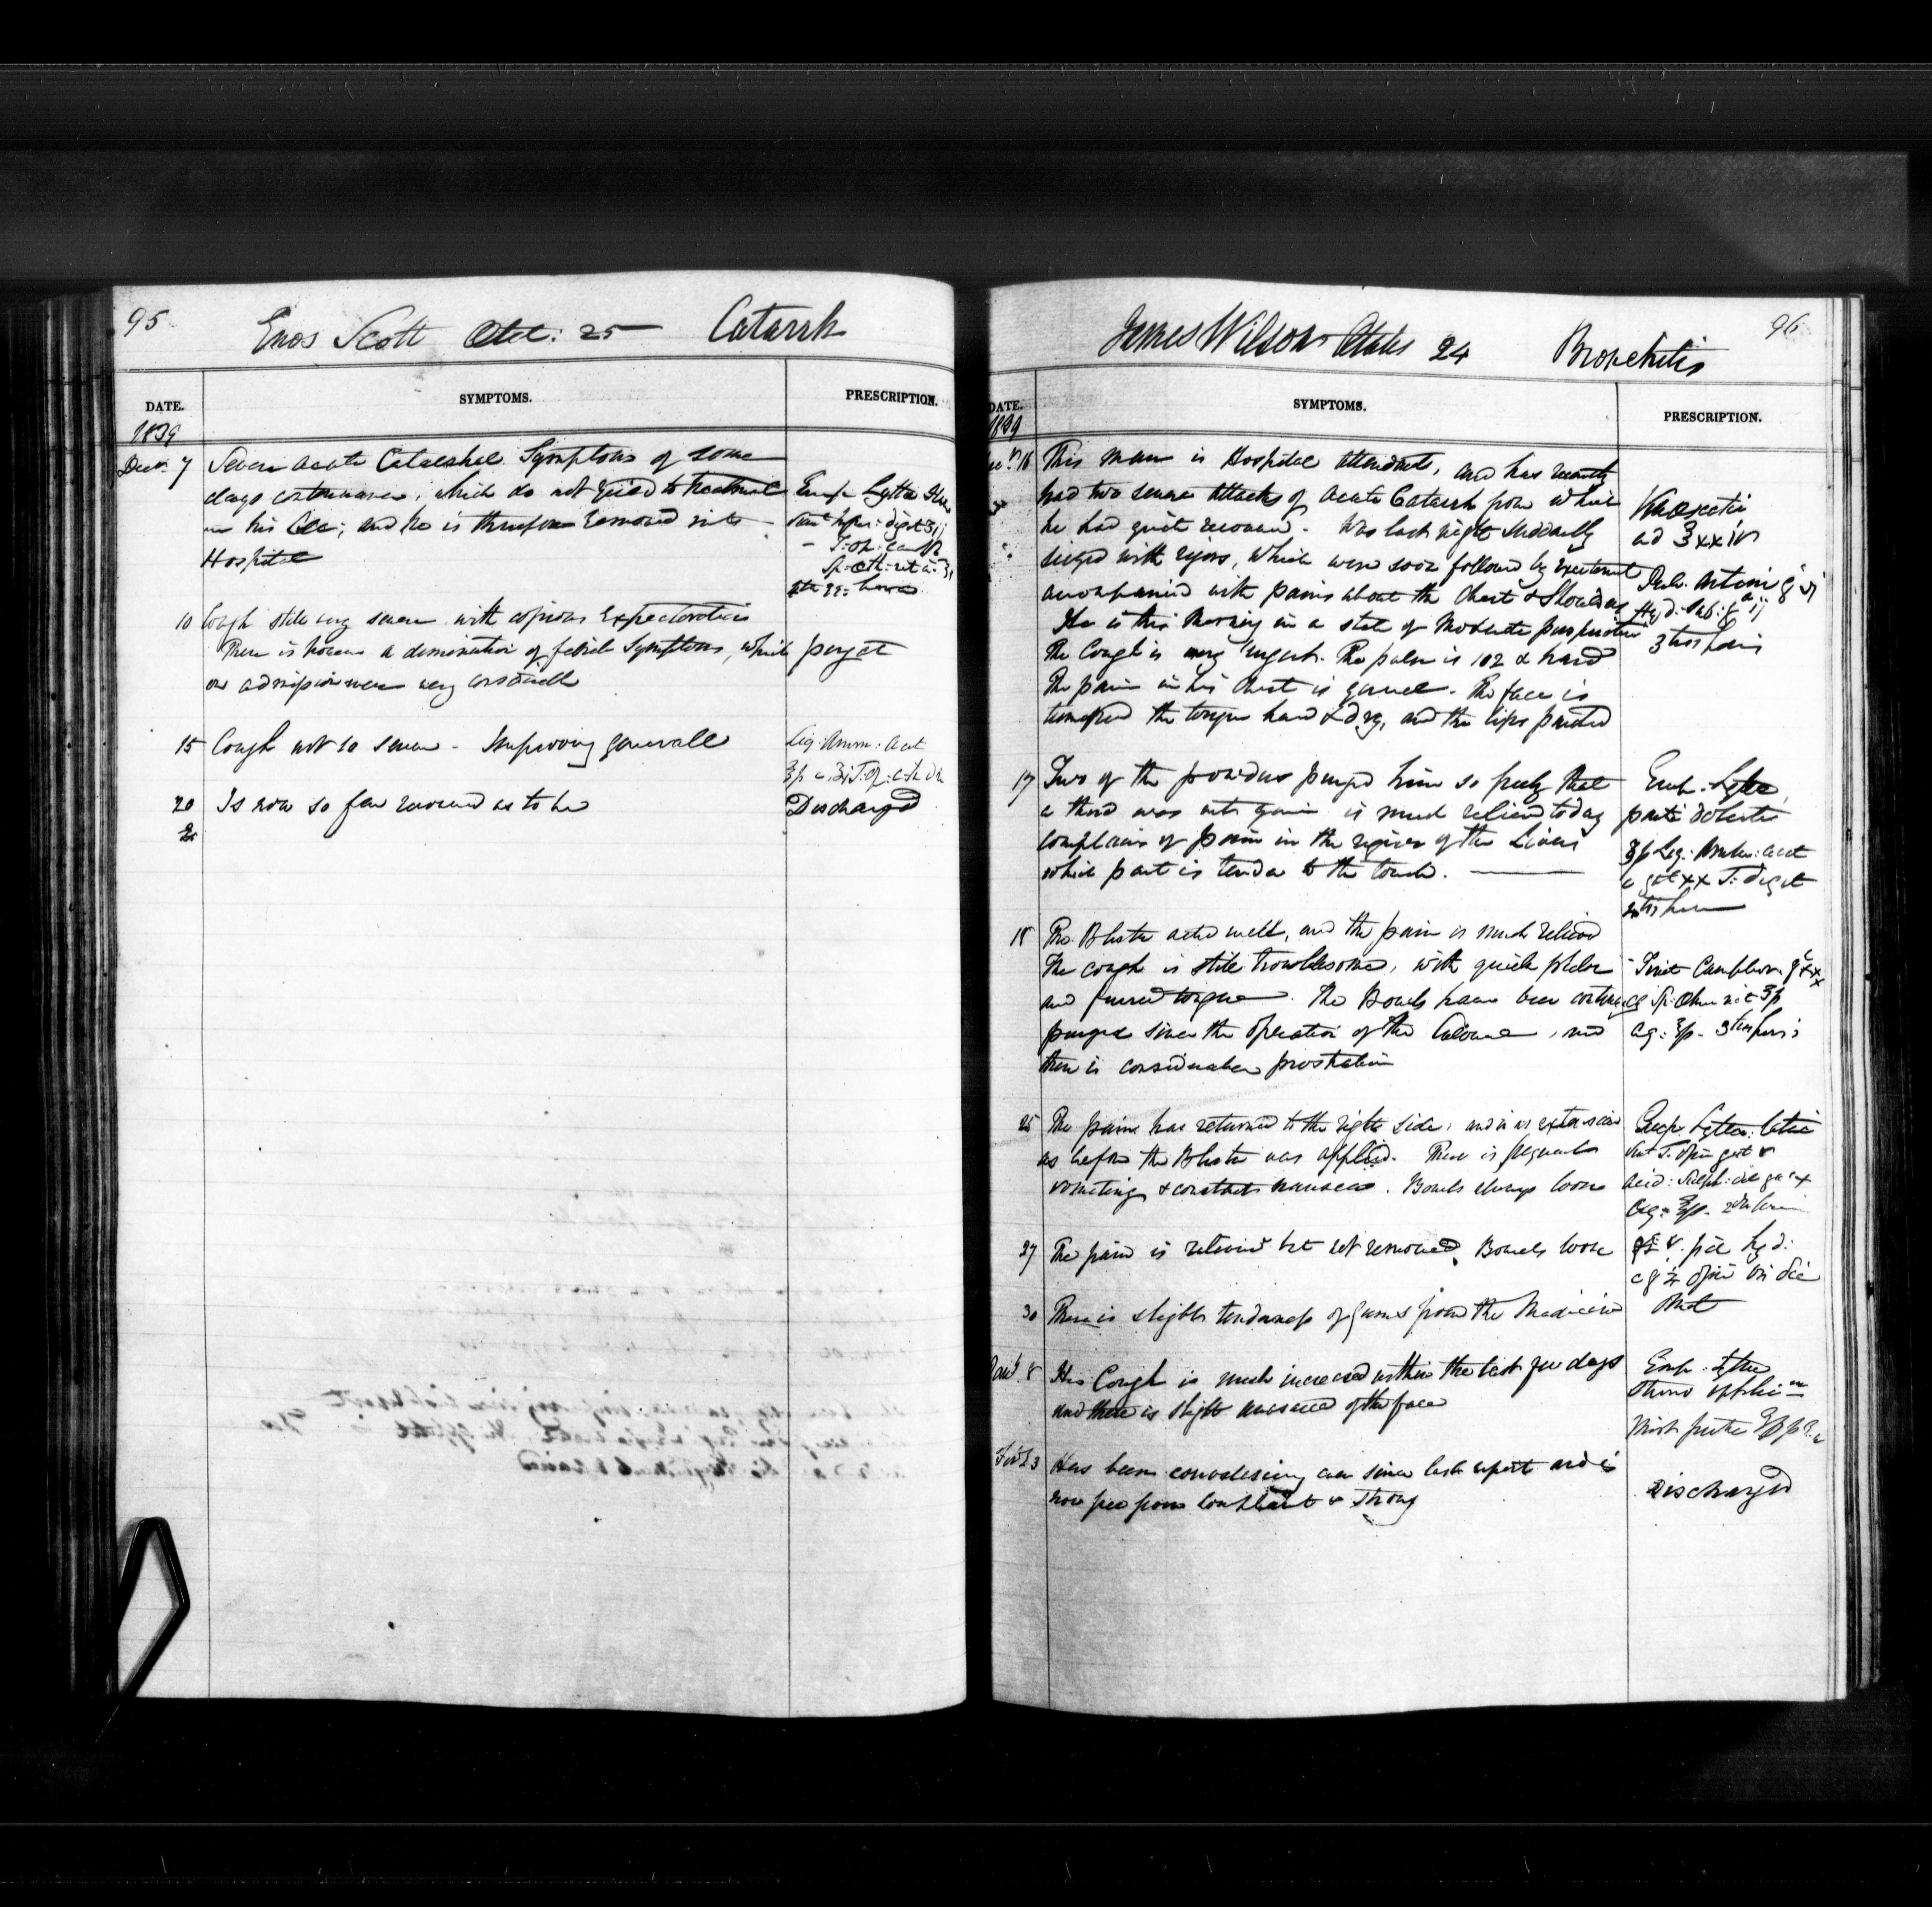 95
Enos Scott Aet: 25 Catarrh
DATE. SYMPTOMS. PRESCRIPTION.
1839
Decr. 7 Severe acute Catarrhal Symptoms of some
days continuance, which do not yield to treatment
in his Cell; and he is therefore removed into
Hospital
Emp Lyttae
10 Cough still very severe with copious Expectoration
There is however a diminution of febrile Symptoms, which
on admission were very considerable
pergat
15 Cough not so severe - Improving generally
Liq: Amm: Acet
20 Is now so far recovered as to be Discharged
96
James Wilson Aetatis 24 Bronchitis
DATE. SYMPTOMS. PRESCRIPTION.
1839
16 This man is Hospital attendant, and has recently
had two severe attacks of acute Catarrh from which
he had quite recovered. Was last night Suddenly
seized with rigors, which were soon followed by
accompanied with pains about the Chest & Shoulders
He is this Morning in a state of Moderate perspiration
The Cough is very urgent. The pulse is 102 & hard
The pain in his Chest is general. The face is
the tongue hard & dry, and the lips parched
Venesectio
ad ℥xxiv
Pulv. Antim
Hyd: Sub:
3tiis horis
17 Two of the powders purged him so freely that
a third was not given is much relieved today
complains of pain in the region of the Liver
which part is tender to the touch.
Emp. Lyttae
parti dolenti
Liq: Amm: acet
c gtt xx T: digit
18 The Blister acted well, and the pain is much relieved
The cough is still troublesome, with quick pulse
and furred tongue. The Bowels have been
purged since the operation of the Calomel, and
there is considerable prostration
Tinct Camphor
25 The pain has returned to the right side, and is as extensive
as before the Blister was applied. There is frequent
vomiting & constant nausea. Bowels always loose
Emp. Lyttae
Acid: Sulph: dil
27 The pain is relieved but not removed. Bowels loose
pil hyd:
opii
30 There is slight tenderness of Gums from the Medicine
8 His Cough is much increased within the last few days
and there is slight of the face
Emp. Lyttae
3 Has been convalescing ever since last report and is
now free from Complaint & Strong
Discharged